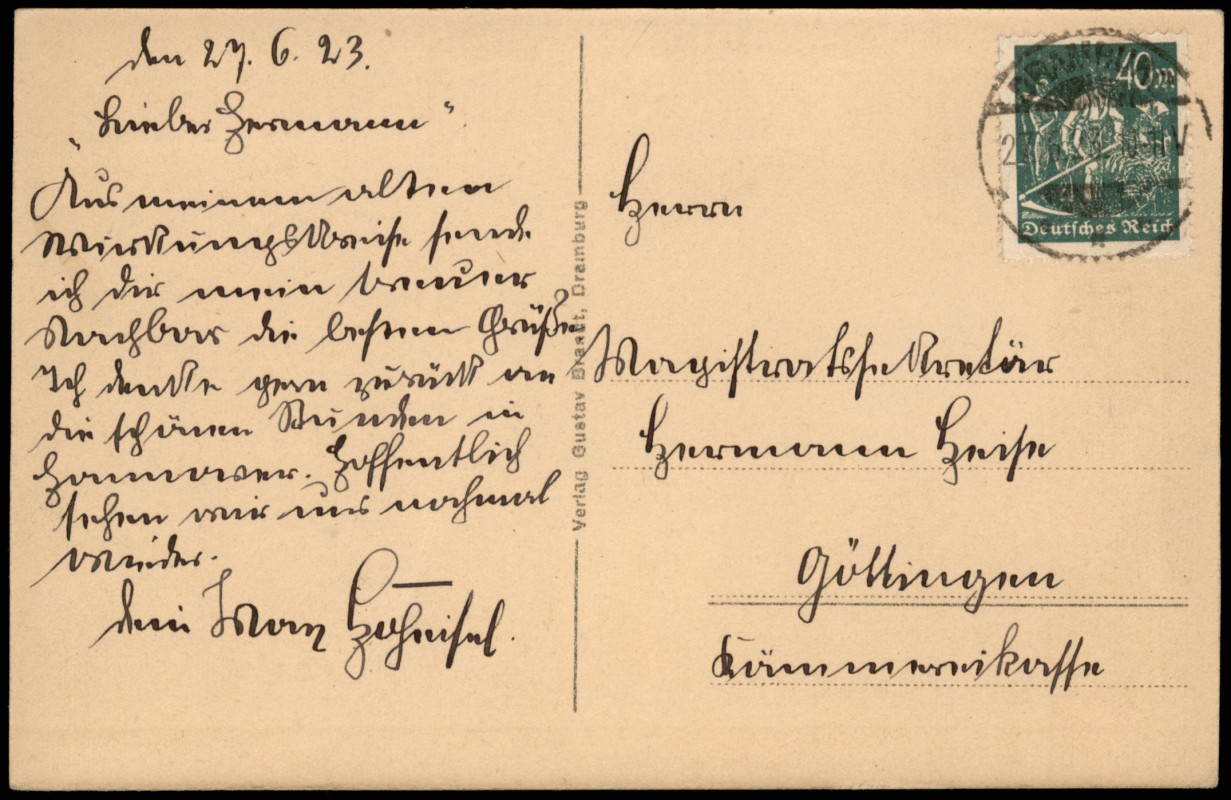 den 27. 6. 23.
„Lieber Hermann"
Aus meinem alten
Wirkungskreise sende
ich dir mein treuer
Nachbar die besten Grüße
Ich denke gern zurück an
die schönen Stunden in
Hannover. Hoffentlich
sehen wir uns nochmal
wieder.
dein Max
Verlag Gustav Brandt, Dramburg
40
DRAMBURG
27. 6. 23. 10-11 V
Deutsches Reich
Herrn
Magistratssekretär
Hermann Heise
Göttingen
Kämmereikasse